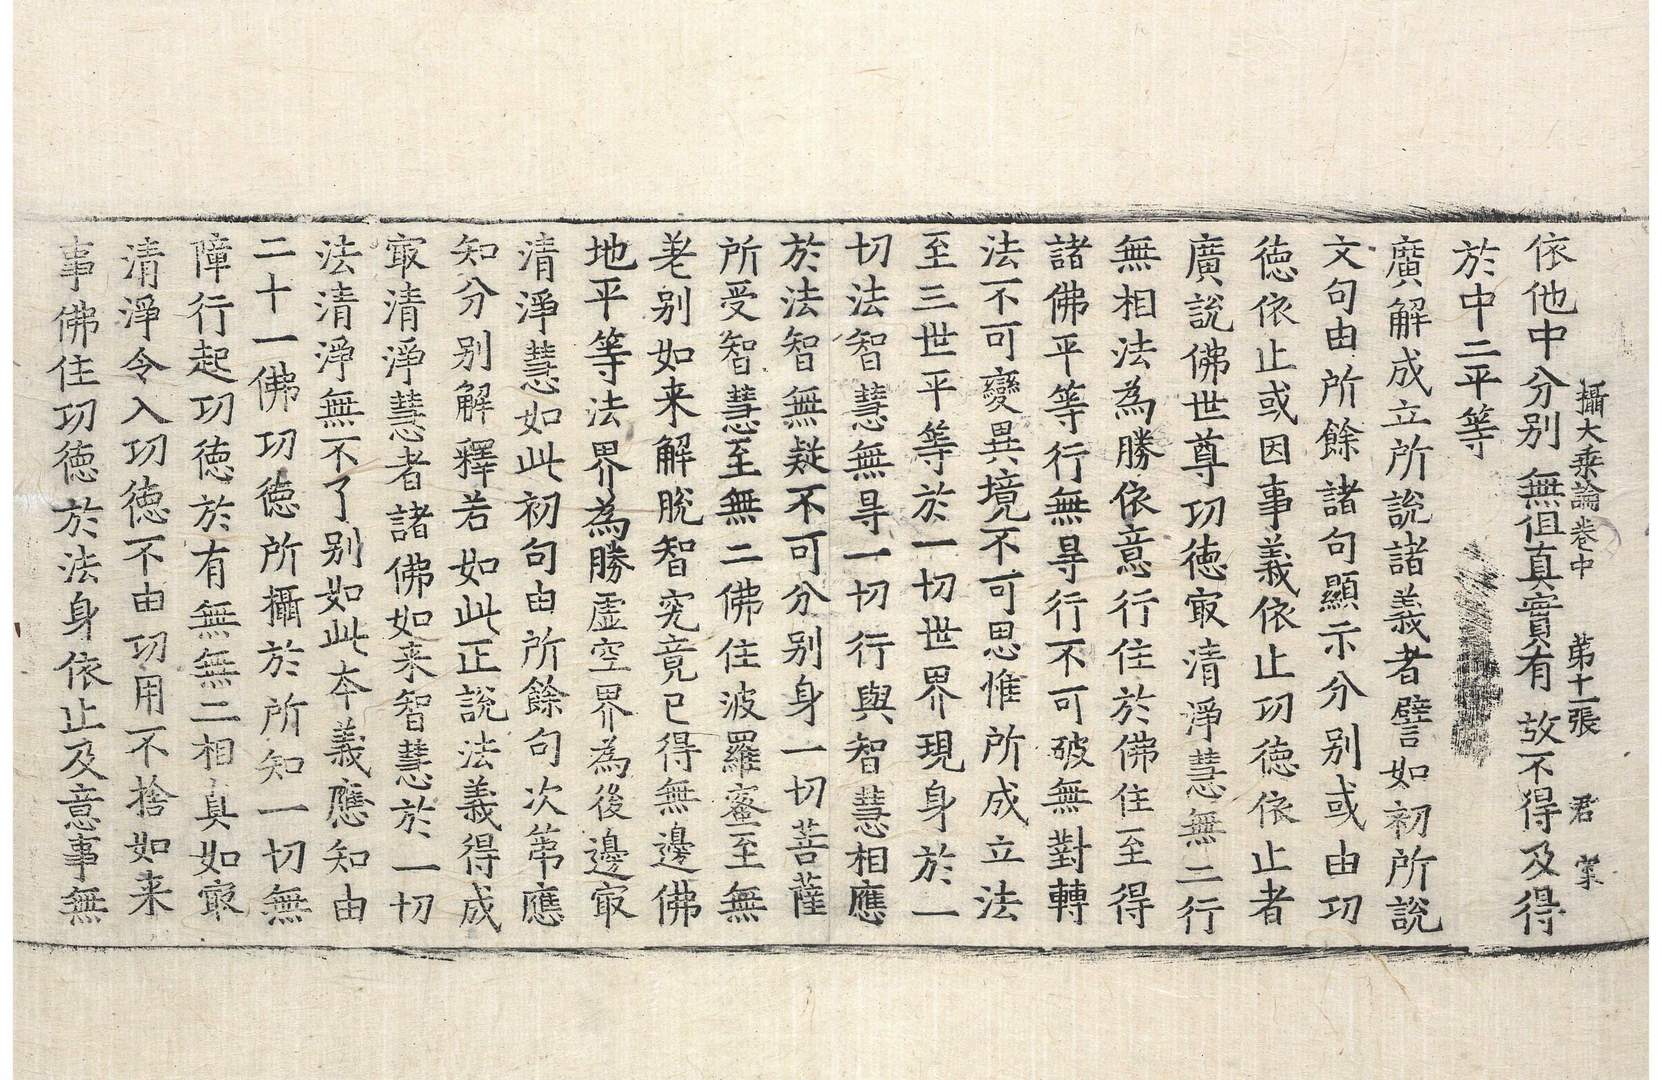 攝大乗論卷中 第十一張 君 業
依他中分別 無但真實有 故不得及得
於中二平等
廣解成立所説諸義者譬言如初所説
文句由所餘諸句顯示分別或由功
徳依止或因事義依止功徳依止者
廣說佛世尊功徳㝡清淨慧無二行
無相法為勝依意行住於佛住至得
諸佛平等行無㝵行不可破無對轉
法不可變異境不可思惟所成立法
至三世平等於一切世界現身於一
切法智慧無㝵一切行與智慧相應
於法智無疑不可分別身一切菩薩
所受智慧至無二佛住波羅蜜至無
差别如来解脫智究竟已得無邊佛
地平等法界為勝虚空界為後邊㝡
清淨慧如此初句由所餘句次第應
知分別解釋若如此正說法義得成
㝡清淨慧者諸佛如来智慧於一切
法清淨無不了别如此夲義應知由
二十一佛功徳所攝於所知一切無
障行起功徳於有無無二相真如㝡
清淨令入功徳不由功用不捨如来
事佛住功徳於法身依止及意事無